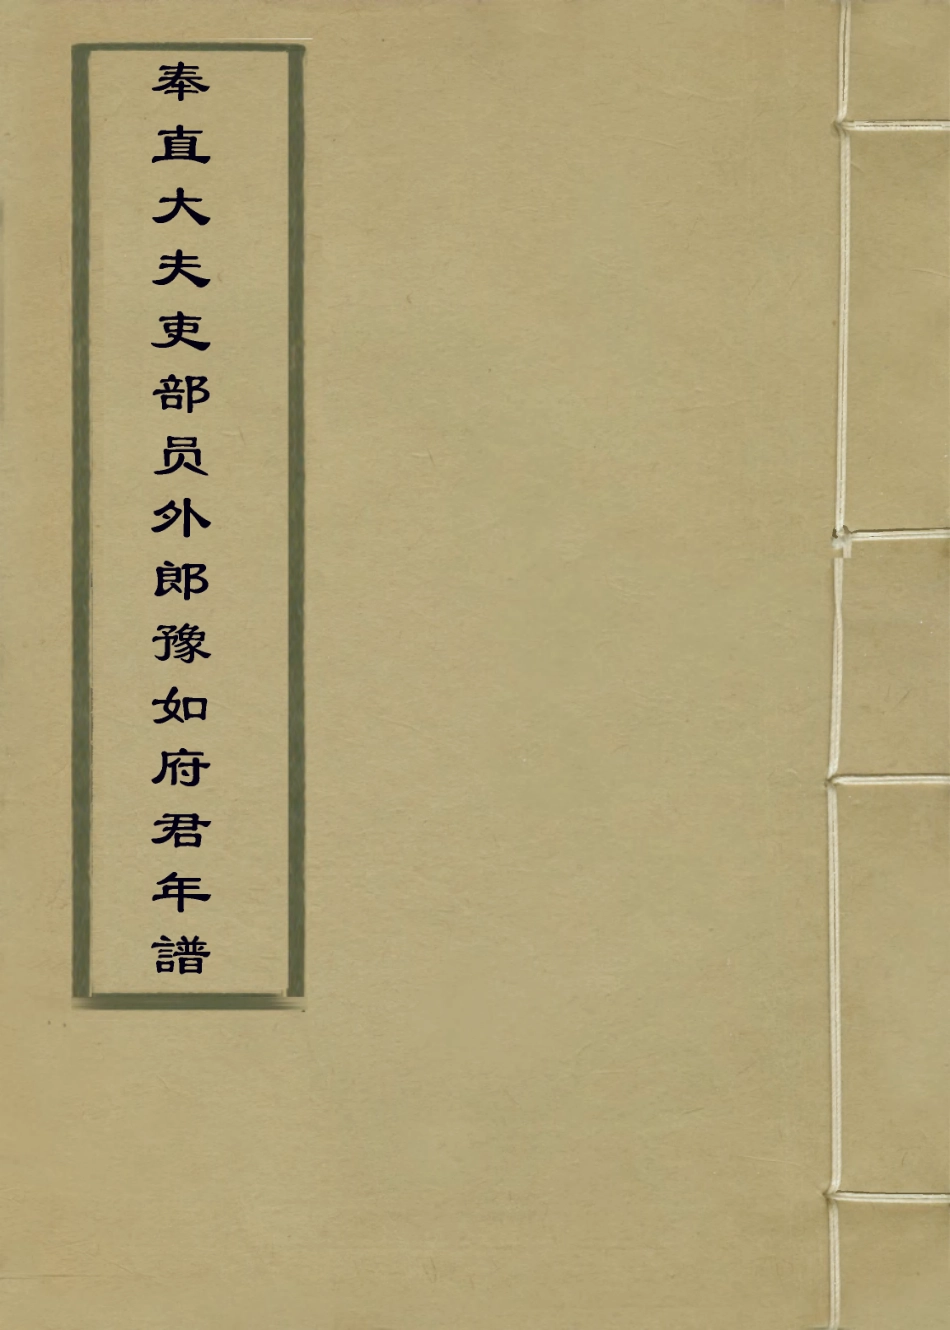 奉直大夫吏部员外郎豫如府君年譜